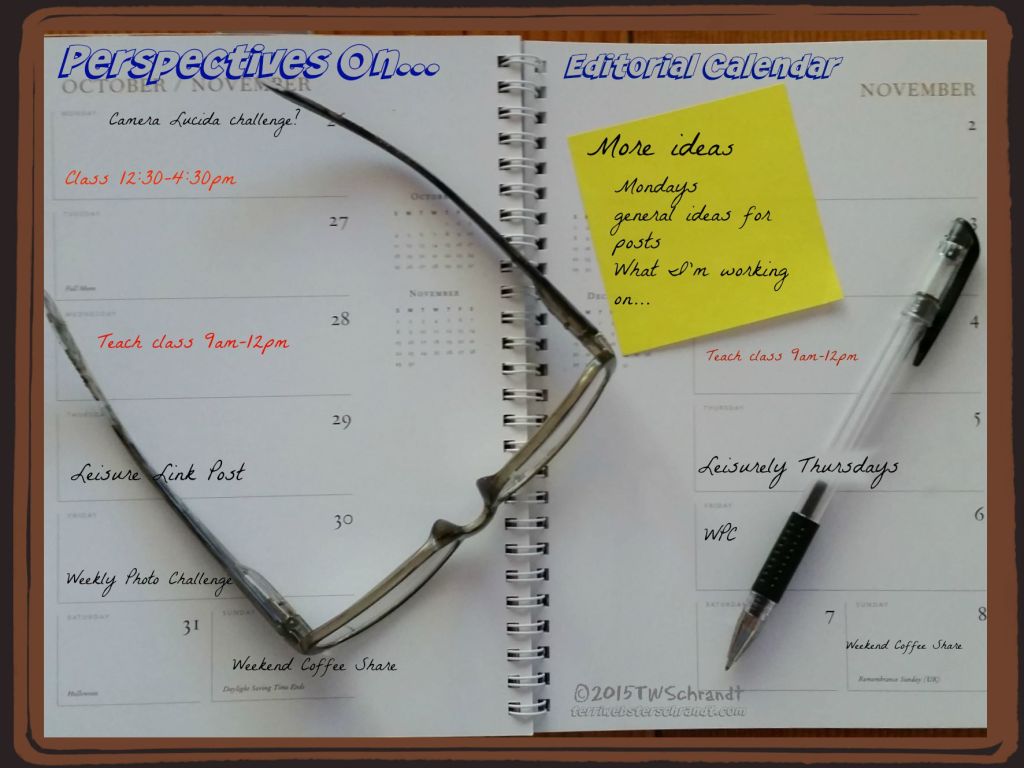 Perspectives On...
OCTOBER / NOVEMBER
MONDAY
Camera Lucida challenge?
Class 12:30-4:30pm
TUESDAY
27
Full Moon
WEDNESDAY
28
Teach class 9am-12pm
29
Leisure Link Post
FRIDAY
30
Weekly Photo Challenge
SATURDAY
31
Halloween
SUNDAY
Weekend Coffee Share
Daylight Saving Time Ends
NOVEMBER
Editorial Calendar
NOVEMBER
2
More ideas
Mondays
general ideas for
posts
What I'm working
on...
3
4
Teach class 9am-12pm
THURSDAY
5
Leisurely Thursdays
FRIDAY
6
WPC
SATURDAY
7
SUNDAY
8
Weekend Coffee Share
Remembrance Sunday (UK)
©2015TWSchrandt
terriwebsterschrandt.com